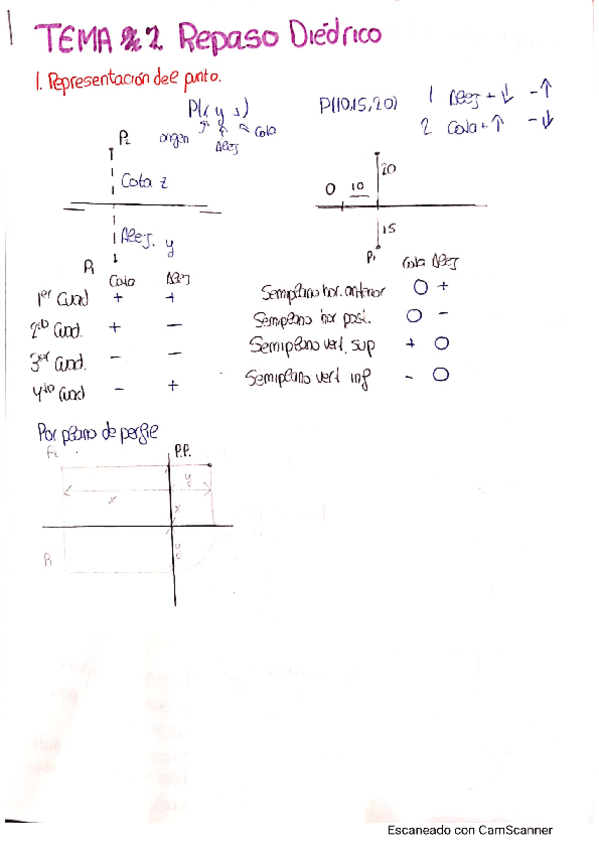 TEMA 2 Repaso Diédrico
1. Representación del punto.
P(x y z)
origen Alej Cota
P(10,15,20)
1 Alej + ↓ - ↑
2 Cota + ↑ - ↓
P2
Cota z
Alej. y
P1
20
0 10
15
P1
Cota Alej
1er Cuad + +
2do Cuad. + -
3er Cuad. - -
4to Cuad - +
Cota Alej
Semiplano hor. anterior 0 +
Semiplano hor posi. 0 -
Semiplano vert. sup + 0
Semiplano vert inf - 0
Por plano de perfil
P2
P.P.
y
x
P1
Escaneado con CamScanner